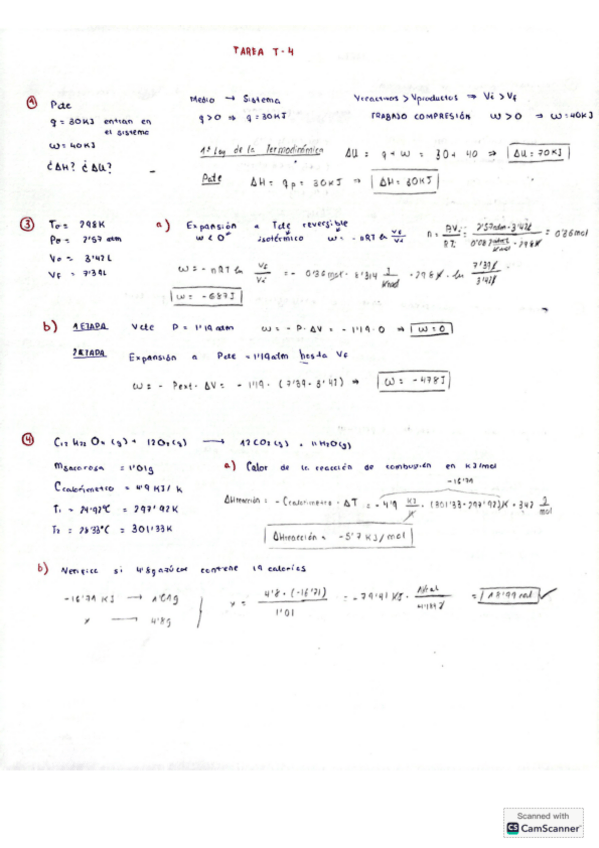 TAREA T-4
① Pcte
q = 30KJ entran en el sistema
w = 40KJ
¿ΔH? ¿ΔU?
Medio → Sistema
q>0 ⇒ q=30KJ
Vreactivos > Vproductos ⇒ Vi > Vf
TRABAJO COMPRESIÓN w>0 ⇒ w=40KJ
1ª Ley de la Termodinámica ΔU = q + w = 30 + 40 ⇒ ΔU = 70KJ
Pcte ΔH = qp = 30KJ ⇒ ΔH = 30KJ
③ To = 298K
Po = 2'57 atm
Vo = 3'42L
Vf = 7'39L
a) Expansión a Tcte reversible
w<0 isotérmico w = -nRT ln Vf/Vi
w = -nRT ln Vf/Vi = -0'36mol · 8'314 J/Kmol · 298K · ln 7'39L/3'42L
w = -687J
b) 1 ETAPA Vcte P = 1'19atm w = -P·ΔV = -1'19·0 ⇒ w=0
2 ETAPA Expansión a Pcte = 1'19atm hasta Vf
w = - Pext· ΔV = - 1'19 · (7'39 - 3'42) ⇒ w = -478J
④ C12 H22 O11 (s) + 12O2(g) → 12CO2(g) + 11H2O(g)
msacarosa = 1'01g
Ccalorímetro = 4'9 KJ/K
T1 = 24'92ºC = 297'92K
T2 = 28'33ºC = 301'33K
a) Calor de la reacción de combustión en KJ/mol
ΔHreacción = -Ccalorímetro · ΔT = -4'9 KJ/K · (301'33-297'92)K · 342 g/mol
ΔHreacción = -5'7 KJ/mol
b) Verifica si 4'8g azúcar contiene 19 calorías
x → 4'8g